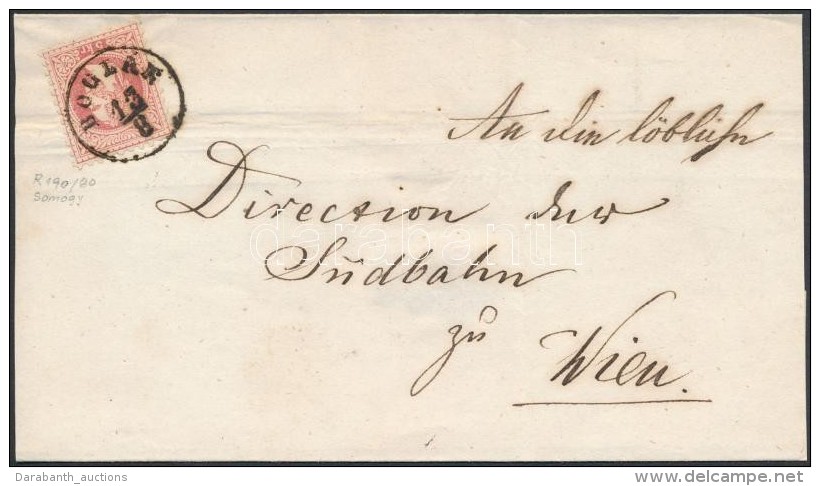 5 kr
BOGLÁR
13/8
R 190/20
Somogy
An die löbliche
Direction der
Südbahn
zu
Wien.
darabanth
Darabanth_auctions
www.delcampe.net